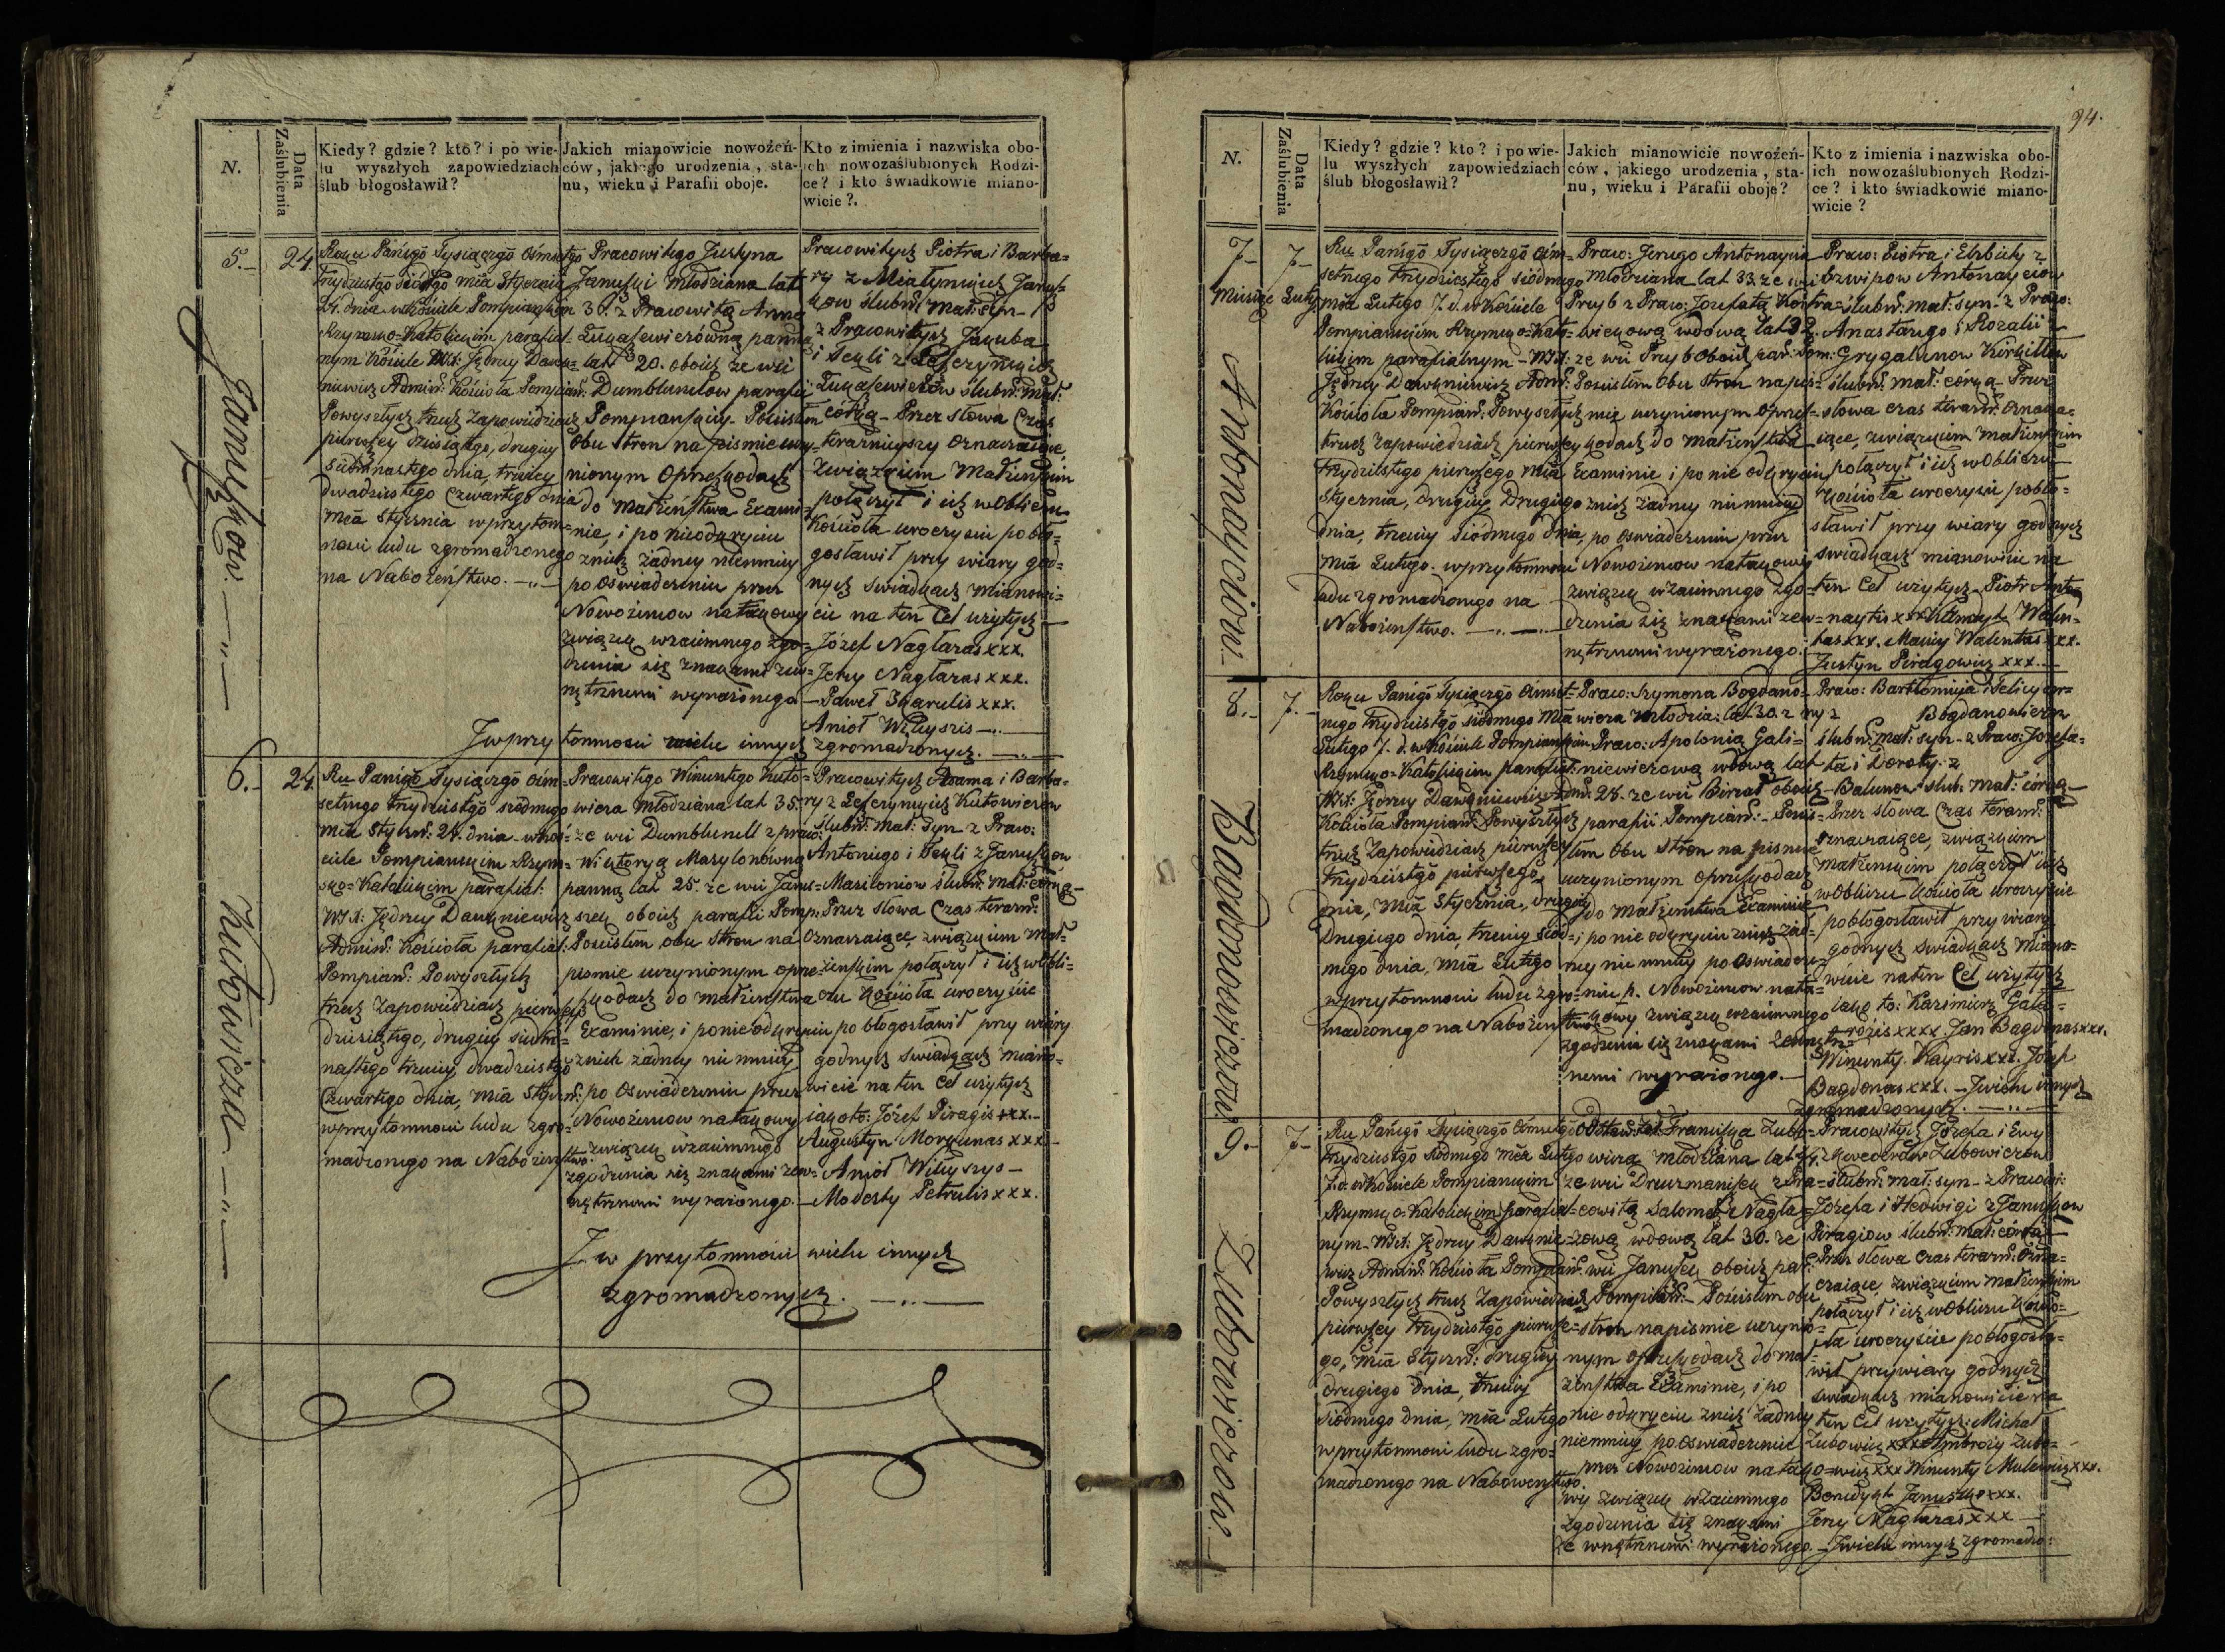 N.
Data Zaślubienia
Kiedy? gdzie? kto? i po wie-
lu wyszłych zapowiedziach
ślub błogosławił?
Jakich mianowicie nowożeń-
ców, jakiego urodzenia, sta-
nu, wieku i Parafii oboje.
Kto z imienia i nazwiska obo-
ich nowozaślubionych Rodzi-
ce? i kto świadkowie miano-
wicie?.
5.
24.
Januszkow.
Roku Pańsgo Tysiączgo Ośmsetgo
Trzydziestgo siódmgo mca Stycznia
24. dnia w Kościele Pompianskim
Rzymsko=Katolickim parafial=
nym Kościele WJX: Jędrzej Dawg=
niewicz Admin: Kościoła Pompian:
Powyszłych trzech zapowiedziach
pierwszey dziesiątego, drugiey
siedmnastego dnia, trzeciey
dwadziestego Czwartego dnia
mca Stycznia w przytom=
ności ludu zgromadzonego
na Nabożeństwo.
Pracowitego Justyna
Januszki młodziana lat
30. z Pracowitą Anną
Łukaszewiczówną panną
lat 20. oboich ze wsi
Dumblunelow parafii
Pompianskiey. Pościsłem
Obu stron na pismie uczy=
nionym Oprzeszkodach
do małżeństwa Exami=
nie, i po nieodkryciu
znich żadney niemniey
po oświadczeniu przez
Nowożeńcow na takowy
związek wzaiemnego zgo=
dzenia się znakami zew=
nętrznemi wyrażonego
Pracowitych Piotra i Barba=
ry z Januſz=
kow ślubn: małż: syn
z Pracowitych Jakuba
i Tekli z
Łukaszewiczów ślubn: małż:
córką. Przez słowa Czas
teraznieyszy oznaczaiące,
związkiem Małżeńskim
połączył i ich w Obliczu
Kościoła uroczyscie pobło=
gosławił przy wiary god=
nych swiadkach Mianowi=
cie na ten Cel użytych
Józef Nagłaras xxx.
Jerzy Nagłaras xxx.
Paweł xxx.
Anioł
J w przy tomności wielu innych zgromadzonych.
6.
24
Kutowicza
Ru Pańsgo Tysiączgo Ośm=
setnego trzydziestgo siódmego
mca Styczn: 24. dnia w Koś=
ciele Pompianskim Rzym=
sko=Katolickim parafial:
WJX: Jędrzey Dawgniewicz
Admin: Kościoła parafial:
Pompian: Powyszłych
trzech Zapowiedziach pierwszey
dziesiątego, drugiey siedm=
nastego trzeciey dwadziestgo
Czwartego dnia, mca Styczn:
w przytomności ludu zgro=
madzonego na Nabożeństwo.
Pracowitego Wincentego Kuto=
wicza młodziana lat 35.
ze wsi Dumblunell z praco:
Wiktoryą Masylonówną
panną lat 25. ze wsi Janu=
szek oboich parafii Pomp:
Pościsłem obu stron na
pismie uczynionym oprze=
szkodach do małżeństwa
Examinie, i ponieodkryciu
znich żadney niemniey
po Oswiadczeniu przez
Nowożeńcow na takowy
związek wzaiemnego
zgodzenia się znakami zew=
nętrznemi wyrażonego.
Pracowitych Adama i Barba=
ry z Kutowiczów
ślubn: małż: syn z Praco:
Antoniego i Tekli z Januszkow
Masiloniow ślubn: małż: córką
Przez słowa Czas terazn:
oznaczaiące, związkiem Mał=
żenskim połączył i ich w Obli=
czu Kościoła uroczyscie
po błogosławił przy wiary
godnych swiadkach Miano=
wicie na ten Cel użytych
iako to: Józef Piragis xxx.
Augustyn Morkunas xxx
Anioł
Modesty Petrulis xxx.
J w przytomności wielu innych
zgromadzonych.
94.
N.
Data Zaślubienia
Kiedy? gdzie? kto? i po wie-
lu wyszłych zapowiedziach
ślub błogosławił?
Jakich mianowicie nowożeń-
ców, jakiego urodzenia, sta-
nu, wieku i Parafii oboje?
Kto z imienia i nazwiska obo-
ich nowozaślubionych Rodzi-
ce? i kto świadkowie miano-
wicie?
7
7
Miesiąc Luty
Antonayciow
Ru Pańsgo Tysiączgo Ośm=
setnego trzydziestgo siódmego
mca Lutego 7. d. w Kościele
Pompianskim Rzymsko=Kato=
lickim parafialnym WJX:
Jędrzey Dawgniewicz Admin:
Kościoła Pompian: Powyszłych
trzech zapowiedziach pierwszey
trzydziestego pierwszego mca
Stycznia, drugiey Drugiego
dnia, trzeciey siódmego dnia,
mca Lutego. w przytomności
ludu zgromadzonego na
Nabożeństwo.
Praco: Jerzego Antonaycia
młodziana lat 33. ze wsi
Przyb z Praco: Jozefatą Koſtra=
wickową wdową lat 32.
ze wsi Przyb Oboich par: Pom:
Pościsłem Obu stron na piś=
mie uczynionym oprzesz=
kodach do małżeństwa
Examinie i po nie odkryciu
znich żadney niemniey
po oswiadczeniu przez
Nowożeńcow na takowy
związek wzaiemnego zgo=
dzenia się znakami zew=
nętrznemi wyrażonego.
Praco: Piotra i Elzbiety z
Antonayciow
ślubn: małż: syn z Praco:
Anastazego i Rozalii z
Grygalunow Kirkiłłow
ślubn: małż: córką Przez
słowa czas terazn: oznacza=
iące, związkiem Małżenskim
połączył i ich w Obliczu
Kościoła uroczyscie pobło=
sławił przy wiary godnych
swiadkach mianowicie na
ten Cel użytych Piotr Anto=
naytis xxx Walen=
tas xxx. Maciey Walentas xxx.
Justyn Piragowicz xxx.
8.
7.
Bogdonowiczow
Roku Pańsgo Tysiączgo Ośmset=
nego trzydziestgo siódmego Mca
Lutego 7. d. w Kościele Pompianskim
Rzymsko=Katolickim parafial:
WJX: Jędrzey Dawgniewicz Admin:
Kościoła Pompian: Powyszłych
trzech Zapowiedziach pierwszey
trzydziestgo pierwszego
dnia, Mca Stycznia, drugiey
Drugiego dnia, trzeciey siód=
mego dnia, Mca Lutego
w przytomności ludu zgro=
madzonego na Nabożeństwo
Praco: Szymona Bogdano=
wicza młodzia: lat 30. z
Praco: Apolonią Gali=
niewiczową wdową lat
28. ze wsi Birzał oboich
parafii Pompian: Pości=
słem Obu stron na pismie
uczynionym oprzeszkodach
do małżenstwa Examinie
i po nie odkryciu znich żad=
ney niemniey po oswiadcze=
niu p. Nowożeńcow na ta=
kowy związek wzaiemnego
zgodzenia się znakami zewnętrz=
nemi wyrażonego.
Praco: Bartłomieja i Felicy
z Bogdanowiczow
ślubn: małż: syn z Praco: Jozefa=
ta i Doroty z
Balunow slub: małż: córką
Przez słowa Czas terazn:
oznaczaiące, związkiem
małżenskim połączył i ich
w Obliczu Kościoła uroczyscie
pobłogosławił przy wiary
godnych swiadkach Miano=
wicie na ten Cel użytych
iako to: Kazimierz
xxxx Jan Bagdonas xxx.
Wincenty Kayris xxx. Józef
Bagdonas xxx. J wielu innych
zgromadzonych.
9.
7.
Zubowiczow
Ru Pańsgo Tysiączgo Ośmsetgo
trzydziestgo siódmego mca Lutego
7. d. w Kościele Pompianskim
Rzymsko=Katolickim parafial=
nym WJX: Jędrzey Dawgnie=
wicz Admin: Kościoła Pompian:
Powyszłych trzech Zapowiedziach
pierwszey trzydziestgo pierwsze=
go, mca Styczn: drugiey
drugiego dnia, trzeciey
siódmego dnia, mca Lutego
w przytomności ludu zgro=
madzonego na Nabożenstwo.
Franciszka Zubo=
wicza młodziana lat
ze wsi z Pra=
cowitą Salomeą Nagla=
zową wdową lat 30. ze
wsi Januszek oboich par:
Pompian: Pościsłem obu
stron na pismie uczynio=
nym oprzeszkodach do ma=
żenstwa Examinie, i po
nie odkryciu znich żadney
niemniey po oswiadczeniu
przez Nowożeńcow na tako=
wy związek wzaiemnego
zgodzenia się znakami
ze wnętrznemi wyrażonego.
Pracowitych Józefa i Ewy
z Zubowiczow
ślubn: małż: syn z Pracowi:
Józefa i Hedwigi z Januszkow
Piragiow ślubn: małż: córką
Przez słowa czas terazn: ozna=
czaiące związkiem małżenskim
połączył i ich w Obliczu Kościo=
ła uroczyscie pobłogosła=
wił przy wiary godnych
swiadkach mianowicie na
ten Cel użytych: Michał
Zubowicz xxx Ambroży Zubo=
wicz xxx Wincenty Mulewicz xxx.
Benedykt Januszko xxx.
Jerzy Nagłaras xxx
J wielu innych zgromadzo: